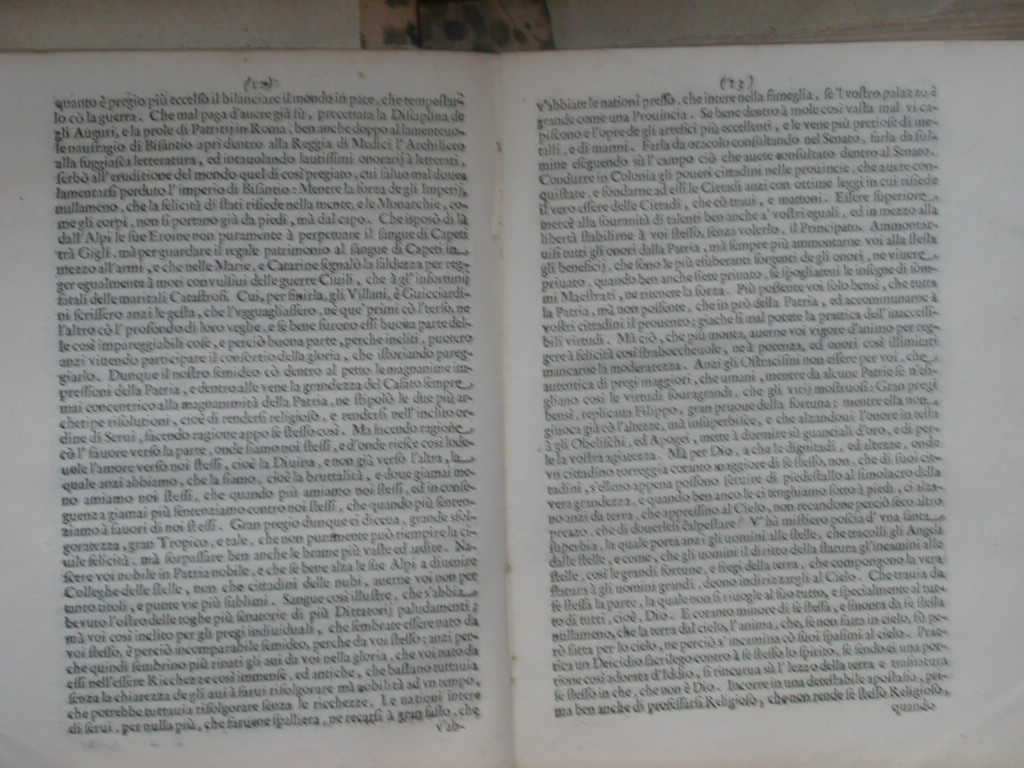 quanto è pregio più eccelso il bilanciare il mondo in pace, che tempestar-
lo cò la guerra. Che mal paga d'auere già fù, precettata la Disciplina de
gli Auguri, e la prole di Patritij in Roma, ben anche doppo al lamenteuo-
le naufragio di Bisantio aprì dentro alla Reggia di Medici l'Archiliceo
alla fuggiasca letteratura, ed intauolando lautissimi onorarij à letterati,
serbò all'eruditione del mondo quel di così pregiato, cui saluo mal douea
lamentarsi perduto l'imperio di Bisantio: Mentre la forza de gli Imperij
nullameno, che la felicità di stati risiede nella mente, e le Monarchie, co-
me gli corpi, non si portano già da piedi, mà dal capo. Che isposò di là
dall'Alpi le sue Eroine non puramente à perpetuare il sangue di Capeti
trà Gigli, mà per guardare il regale patrimonio al sangue di Capeti in
mezzo all'armi, e che nelle Marie, e Catarine segnalò la saldezza per reg-
ger egualmente à moti convulsiui delle guerre Ciuili, che à gl'infortunij
fatali delle maritali Catastrofi. Cui, per finirla, gli Villani, e Guicciardi-
ni scrissero anzi le gesta, che l'vgguagliassero, ne que' primi cò l'terso, ne
l'altro cò l'profondo di loro veglie, e se bene furono essi buona parte del-
le così impareggiabili cose, e perciò buona parte, perche incliti, puotero
anzi vittendo participare il consortio della gloria, che istoriando pareg-
giarlo. Dunque il nostro semideo cò dentro al petto le magnanime im-
pressioni della Patria, e dentro alle vene la grandezza del Casato sempre
mai concentrico alla magnanimità della Patria, ne stipolò le due più ar-
chetipe risolutioni, cioè di rendersi religioso, e rendersi nell'inclito or-
dine di Serui, facendo ragione appo se stesso così. Ma facendo ragione
cò l'fauore verso la parte, onde siamo noi stessi, e d'onde riesce così lode-
uole l'amore verso noi stessi, cioè la Diuina, e non già verso l'altra, la
quale anzi abbiamo, che la siamo, cioè la bruttalità, e doue giamai me-
no amiamo noi stessi, che quando più amiamo noi stessi, ed in conse-
guenza giamai più sentenziamo contro noi stessi, che quando più senten-
ziamo à fauori di noi stessi. Gran pregio dunque ei diceua, grande sfol-
goratezza, gran Tropico, e tale, che non puramente può riempire la ci-
uile felicità, mà sorpassare ben anche le brame più vaste ed ardite. Na-
scere voi nobile in Patria nobile, e che se bene alza le sue Alpi a diuenire
Colleghe delle stelle, non che cittadini delle nubi, auerne voi non per
tanto titoli, e punte vie più sublimi. Sangue così illustre, che s'abbia
bevuto l'ostro delle toghe più senatorie di più Dittatorij paludamenti;
mà voi così inclito per gli pregi indiuiduali, che sembrate essere nato da
voi stesso, e perciò incomparabile semideo, perche da voi stesso; anzi per-
che quindi sembrino più rinati gli aui da voi nella gloria, che voi nato da
essi nell'essere Ricchezze così immense, ed antiche, che bastano tuttauia
senza la chiarezza de gli aui à farui risfolgorare mà nobiltà ad vn tempo,
che potrebbe tuttauia risfolgorare senza le ricchezze. Le nationi intere
di serui, per nulla più, che faruene spalliera, ne recarsi à gran fallo, che
v'ab-
(23)
v'abbiate le nationi presso, che intere nella fameglia, se'l vostro palazzo è
grande come una Prouincia. Se bene dentro à mole così vasta mal vi ca-
piscono e l'opre de gli artefici più eccellenti, e le vene più pretiose di me-
talli, e di marmi. Farla da oracolo consultando nel Senato, farla da ful-
mine eseguendo sù l'campo ciò che auete consultato dentro al Senato.
Condurre in Colonia gli poueri cittadini nelle prouincie, che auete con-
quistate, e fondarne ad essi le Cittadi anzi con ottime leggi in cui risiede
il vero essere delle Cittadi, che cò traui, e mattoni. Essere superiore
mercè alla souranità di talenti ben anche a' vostri eguali, ed in mezzo alla
libertà stabilirne à voi stesso, senza volerlo, il Principato. Ammontar-
uisi tutti gli onori dalla Patria, mà sempre più ammontarne voi alla stessa
gli beneficij, che sono le più esuberanti sorgenti de gli onori, ne viuere
priuato, quando ben anche siete priuato, se spogliatuui le insegne di som-
mi Maestrati, ne ritenete la forza. Più possente voi solo bensì, che tutta
la Patria, mà non possente, che in prò della Patria, ed accommunarne à
vostri cittadini il prouento; giache sì mal potete la pratica dell'inaccessi-
bili virtudi. Mà ciò, che più monta, auerne voi vigore d'animo per reg-
gere à felicità così strabocchevole, ne à potenza, ed onori così illimitati
mancarne la moderatezza. Anzi gli Ostracismi non essere per voi, che
autentica di pregi maggiori, che umani, mentre da alcune Patrie se n'esi-
gliano così le virtudi souragrandi, che gli vizij mostruosi: Gran pregi
bensì, replicaua Filippo, gran pruoue della fortuna; mentre ella non
giuoca già cò l'altezze, mà insuperbisce, e che alzandoui l'onore in testa
à gli Obelischi, ed Apogei, mette à dormire sù guanciali d'oro, e di per-
le la vostra agiatezza. Mà per Dio, a che le dignitadi, ed altezze, onde
vn cittadino torreggia cotanto maggiore di se stesso, non, che di suoi cit-
tadini, s'elleno appena possono seruire di piedestallo al simolacro della
vera grandezza, e quando ben anco le ci tenghiamo sotto à piedi, ci alza-
no anzi da terra, che appressino al Cielo, non recandone perciò seco altro
prezzo, che di douerlesi calpestare? V' hà mistiero poscia d'vna santa
superbia, la quale porta anzi gli uomini alle stelle, che tracolli gli Angeli
dalle stelle, e come, che gli uomini il diritto della statura gl'incamini alle
stelle, così le grandi fortune, e fregi della terra, che compongono la vera
statura à gli uomini grandi, deono indirizzargli al Cielo. Che trauia da
se stessa la parte, la quale non si riuoge al suo tutto, e specialmente al tut-
to di tutti, cioè, Dio. E cotanto minore di se stessa, e smonta da se stessa
nullameno, che la terra dal cielo, l'anima, che, se non fatta in cielo, fù pe-
rò fatta per lo cielo, ne perciò s'incamina cò suoi spasimi al cielo. Prac-
tica un Deicidio sacrilego contro à se stesso lo spirito, se sendo ei una por-
tione così adorata d'Iddio, si rincurua sù l'lezzo della terra e trasnatura
se stesso in che, che non è Dio. Incorre in una detestabile apostasia, per-
ma ben anche di professarsi Religioso, che non rende se stesso Religioso,
quando